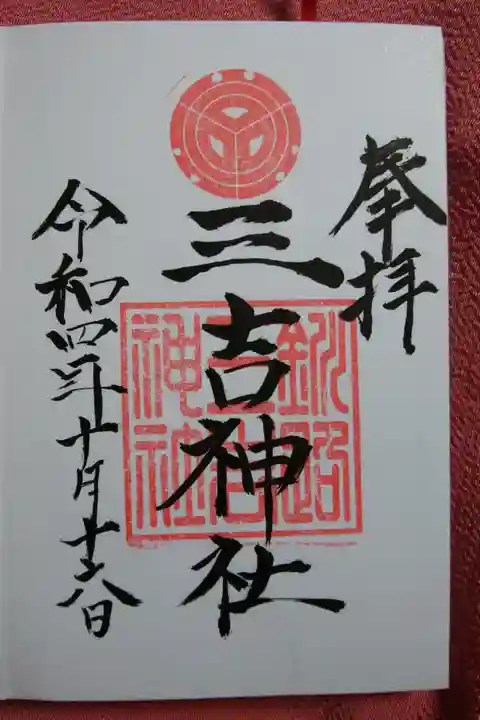 奉拝
三吉神社
釧路
三吉
神社
令和四年十月十六日